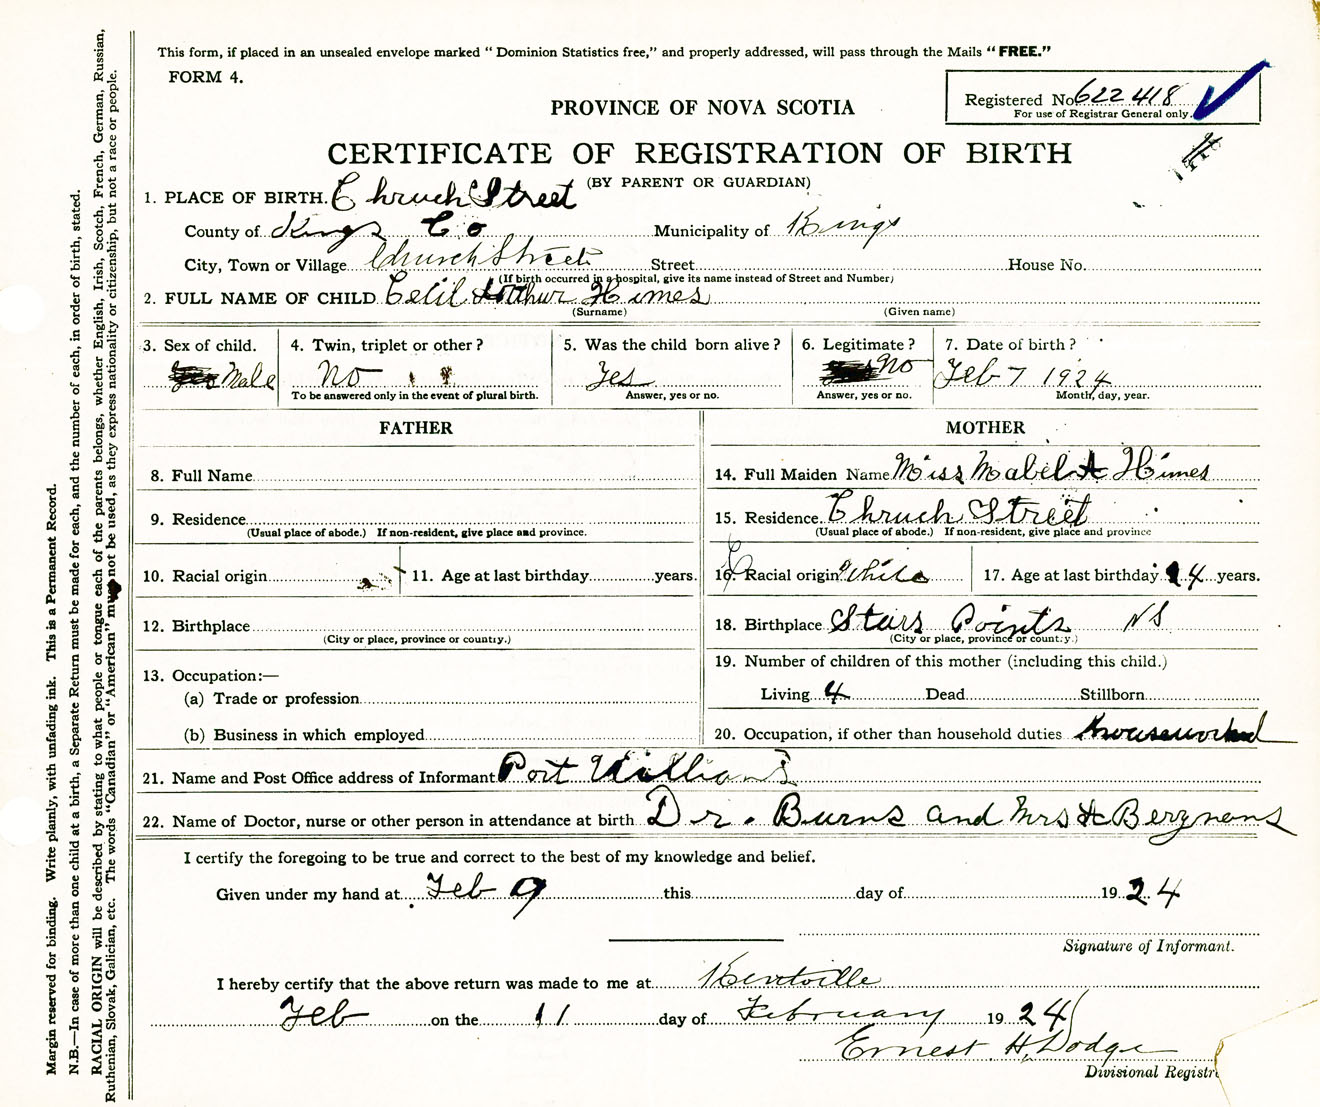 This form, if placed in an unsealed envelope marked "Dominion Statistics free," and properly addressed, will pass through the Mails "FREE."
FORM 4.
Registered No. 622418
For use of Registrar General only.
PROVINCE OF NOVA SCOTIA
CERTIFICATE OF REGISTRATION OF BIRTH
(BY PARENT OR GUARDIAN)
1. PLACE OF BIRTH. Chruch Street
County of Kings Co Municipality of Kings
City, Town or Village Church Street Street House No.
(If birth occurred in a hospital, give its name instead of Street and Number)
2. FULL NAME OF CHILD Cecil Arthur Himes
(Surname) (Given name)
3. Sex of child. 4. Twin, triplet or other? 5. Was the child born alive? 6. Legitimate? 7. Date of birth?
Male No Yes No Feb 7 1924
To be answered only in the event of plural birth. Answer, yes or no. Answer, yes or no. Month, day, year.
FATHER MOTHER
8. Full Name 14. Full Maiden Name Miss Mabel A Himes
9. Residence 15. Residence Chruch Street
(Usual place of abode.) If non-resident, give place and province. (Usual place of abode.) If non-resident, give place and province
10. Racial origin 11. Age at last birthday years. 16. Racial origin White 17. Age at last birthday 24 years.
12. Birthplace 18. Birthplace Stars Points NS
(City or place, province or country.) (City or place, province or country.)
13. Occupation:— 19. Number of children of this mother (including this child.)
(a) Trade or profession Living 4 Dead Stillborn
(b) Business in which employed 20. Occupation, if other than household duties
21. Name and Post Office address of Informant Port Williams
22. Name of Doctor, nurse or other person in attendance at birth Dr. Burns and Mrs
I certify the foregoing to be true and correct to the best of my knowledge and belief.
Given under my hand at Feb 9 this day of 1924
Signature of Informant.
I hereby certify that the above return was made to me at Kentville
Feb on the 11 day of February 1924
Ernest H. Dodge
Divisional Registr
Margin reserved for binding. Write plainly, with unfading ink. This is a Permanent Record.
N.B.—In case of more than one child at a birth, a Separate Return must be made for each, and the number of each, in order of birth, stated.
RACIAL ORIGIN will be described by stating to what people or tongue each of the parents belongs, whether English, Irish, Scotch, French, German, Russian,
Ruthenian, Slovak, Galician, etc. The words "Canadian" or "American" must not be used, as they express nationality or citizenship, but not a race or people.